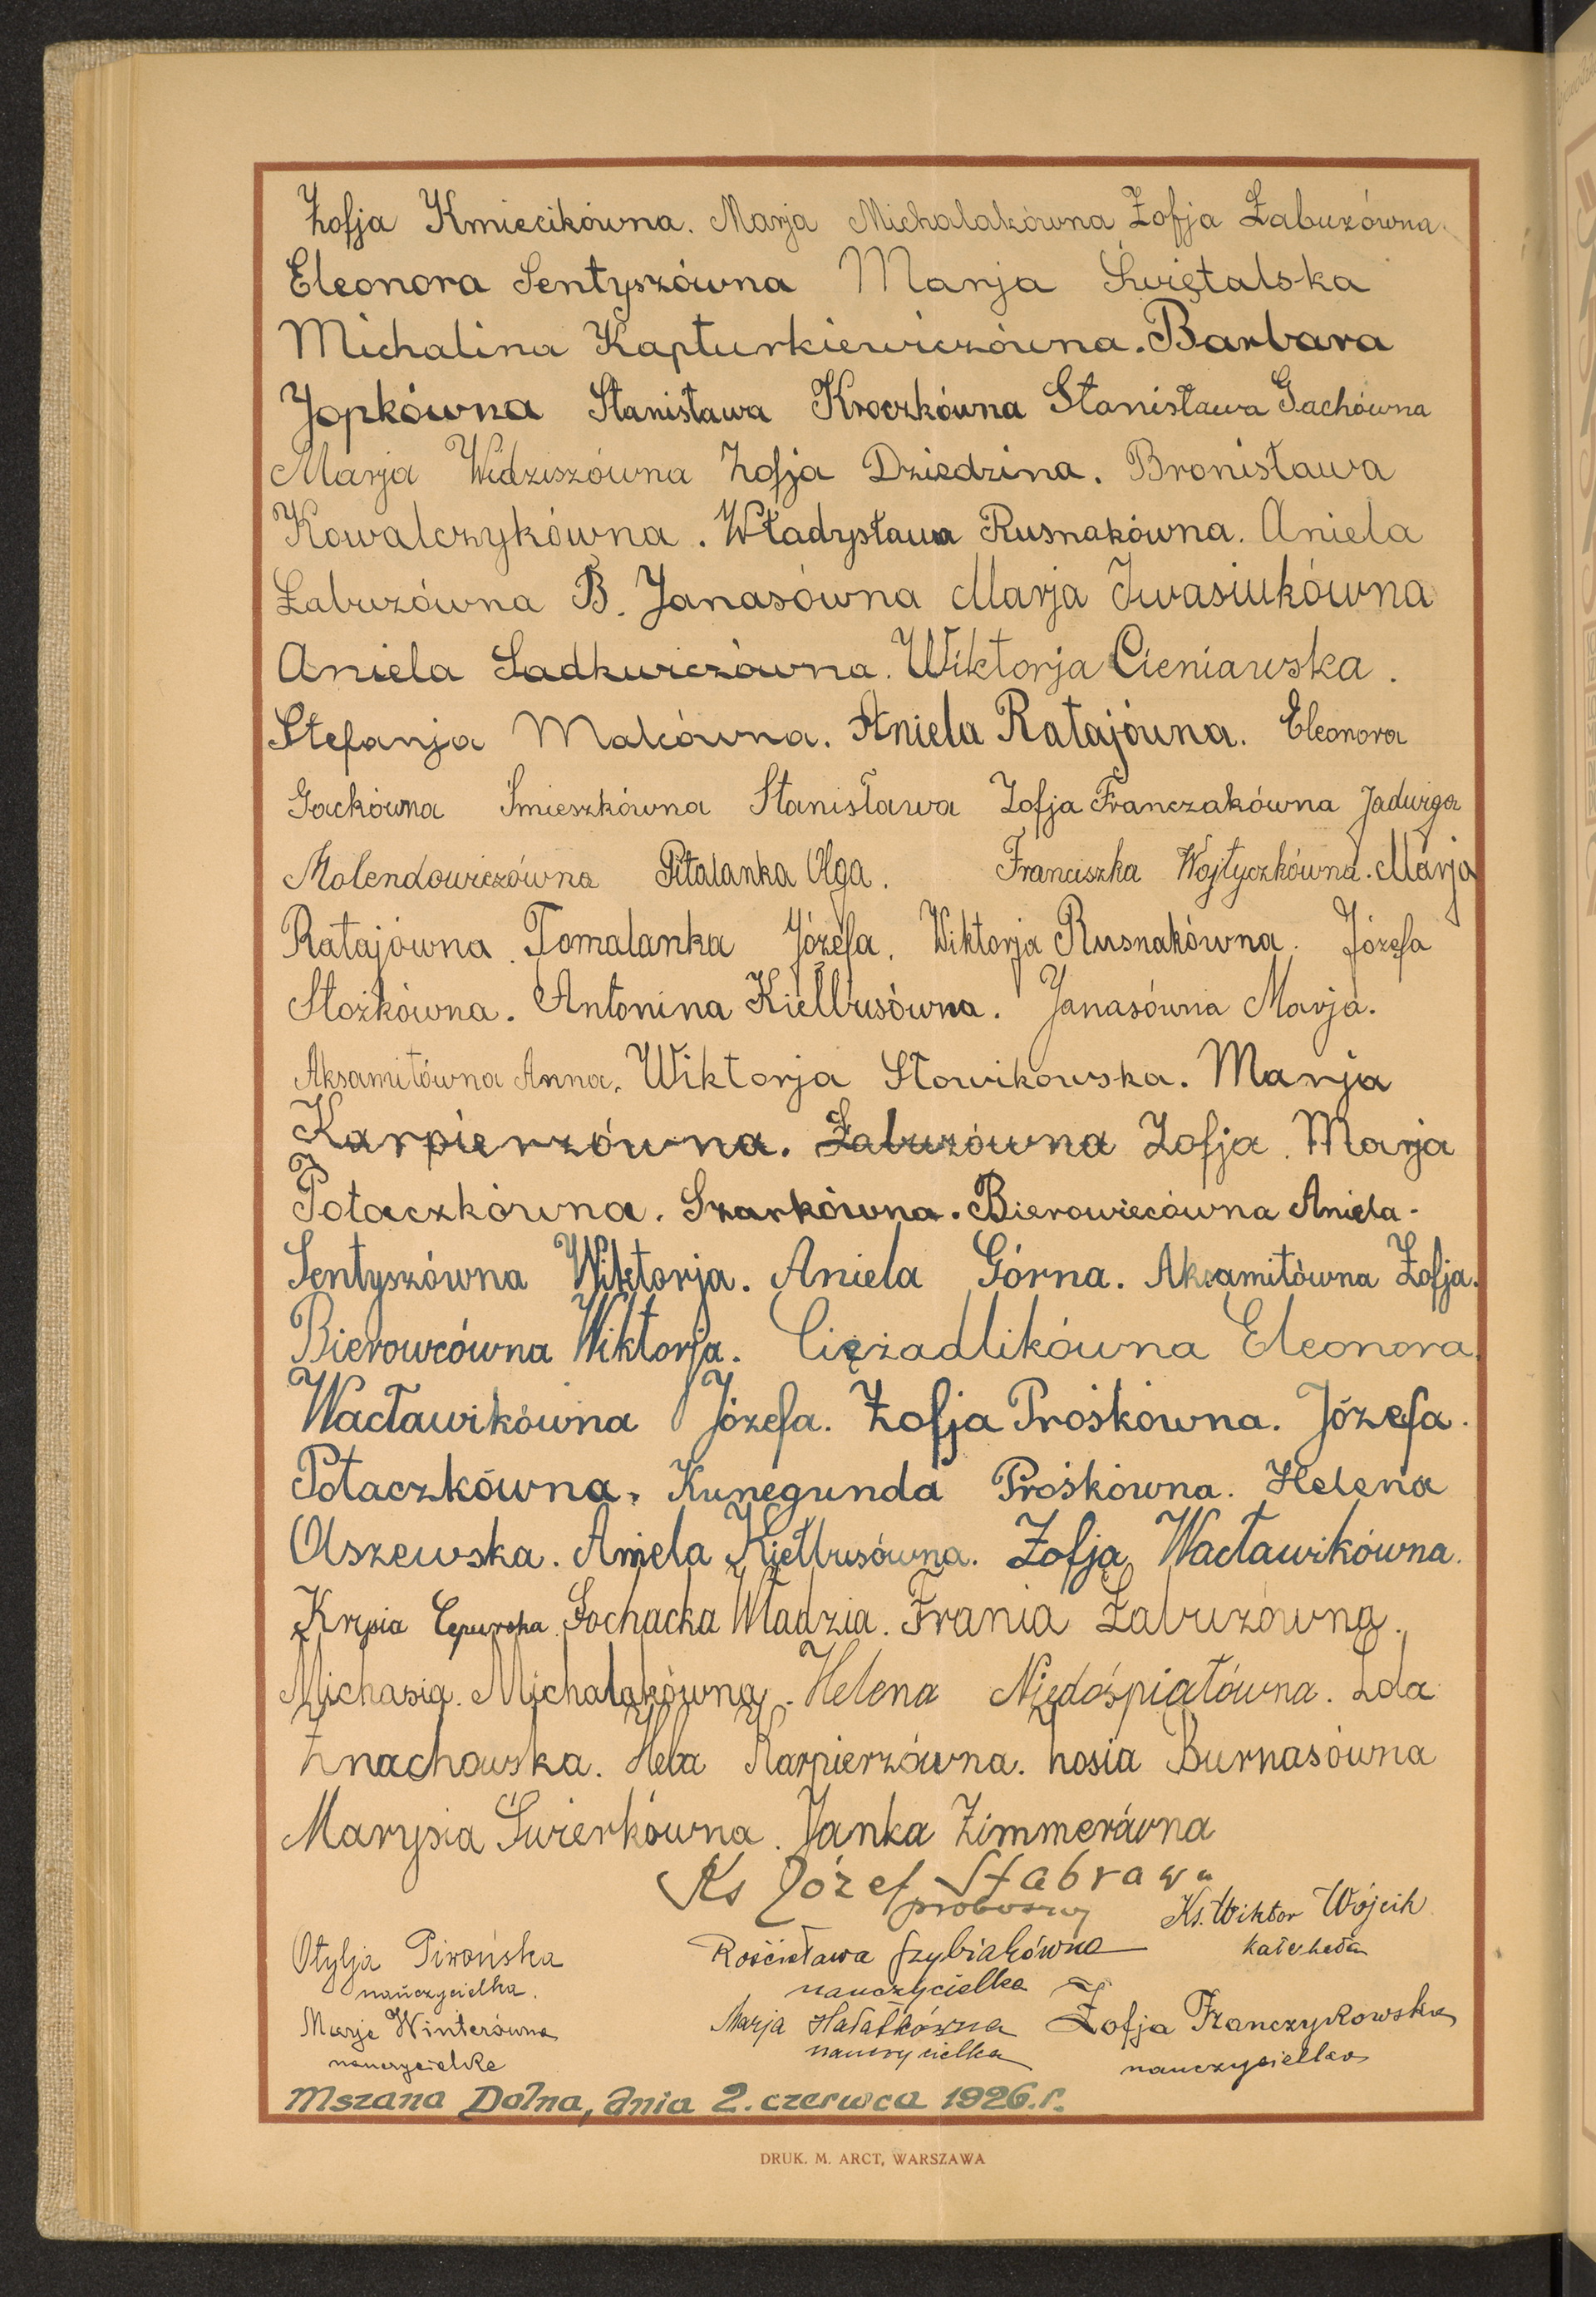 Zofja Kmiecikówna. Marja Michalakówna Zofja Łabuzówna
Eleonora Sentyszówna Marja Świętalska
Michalina Kapturkiewiczówna. Barbara
Jopkówna Stanisława Kroczkówna Stanisława Gachówna
Marja Widziszówna Zofja Dziedzina. Bronisława
Kowalczykówna. Władysława Rusnakówna. Aniela
Łabuzówna B. Janasówna Marja Iwasiukówna
Aniela Sadkwiczówna. Wiktorja Cieniawska.
Stefanja Malcówna. Aniela Ratajówna. Eleonora
Gackówna Śmieszkówna Stanisława Zofja Franczakówna Jadwiga
Molendowiczówna Pitalanka Olga. Franciszka Wojtyczkówna. Marja
Ratajówna. Tomalanka Józefa. Wiktorja Rusnakówna. Józefa
Stożkówna. Antonina Kiełbusówna. Janasówna Marja.
Aksamitówna Anna. Wiktorja Słowikowska. Marja
Karpierzówna. Łabuzówna Zofja. Marja
Potaczkówna. Szarkówna. Bierowiecówna Aniela.
Sentyszówna Wiktorja. Aniela Górna. Aksamitówna Zofja.
Bierowcówna Wiktorja. Ciężadlikówna Eleonora.
Wacławikówna Józefa. Zofja Prośkówna. Józefa.
Potaczkówna. Kunegunda Prośkówna. Helena
Olszewska. Aniela Kiełbusówna. Zofja Wacławikówna.
Krysia Cepurska. Sochacka Władzia. Frania Łabuzówna.
Michasia Michalakówna. Helena Niedośpiałówna. Lola
Znachowska. Hela Karpierzówna. Zosia Burnasówna
Marysia Świerkówna. Janka Zimmerówna
Ks Józef Stabrawa
proboszcz
Ks. Wiktor Wójcik
katecheta
Otylja Pirońska
nauczycielka.
Rościsława Szybiakówna
nauczycielka
Marja Winterówna
nauczycielka
Marja Hałatkówna
nauczycielka
Zofja Franczykowska
nauczycielka
Mszana Dolna, dnia 2. czerwca 1926.r.
DRUK. M. ARCT, WARSZAWA